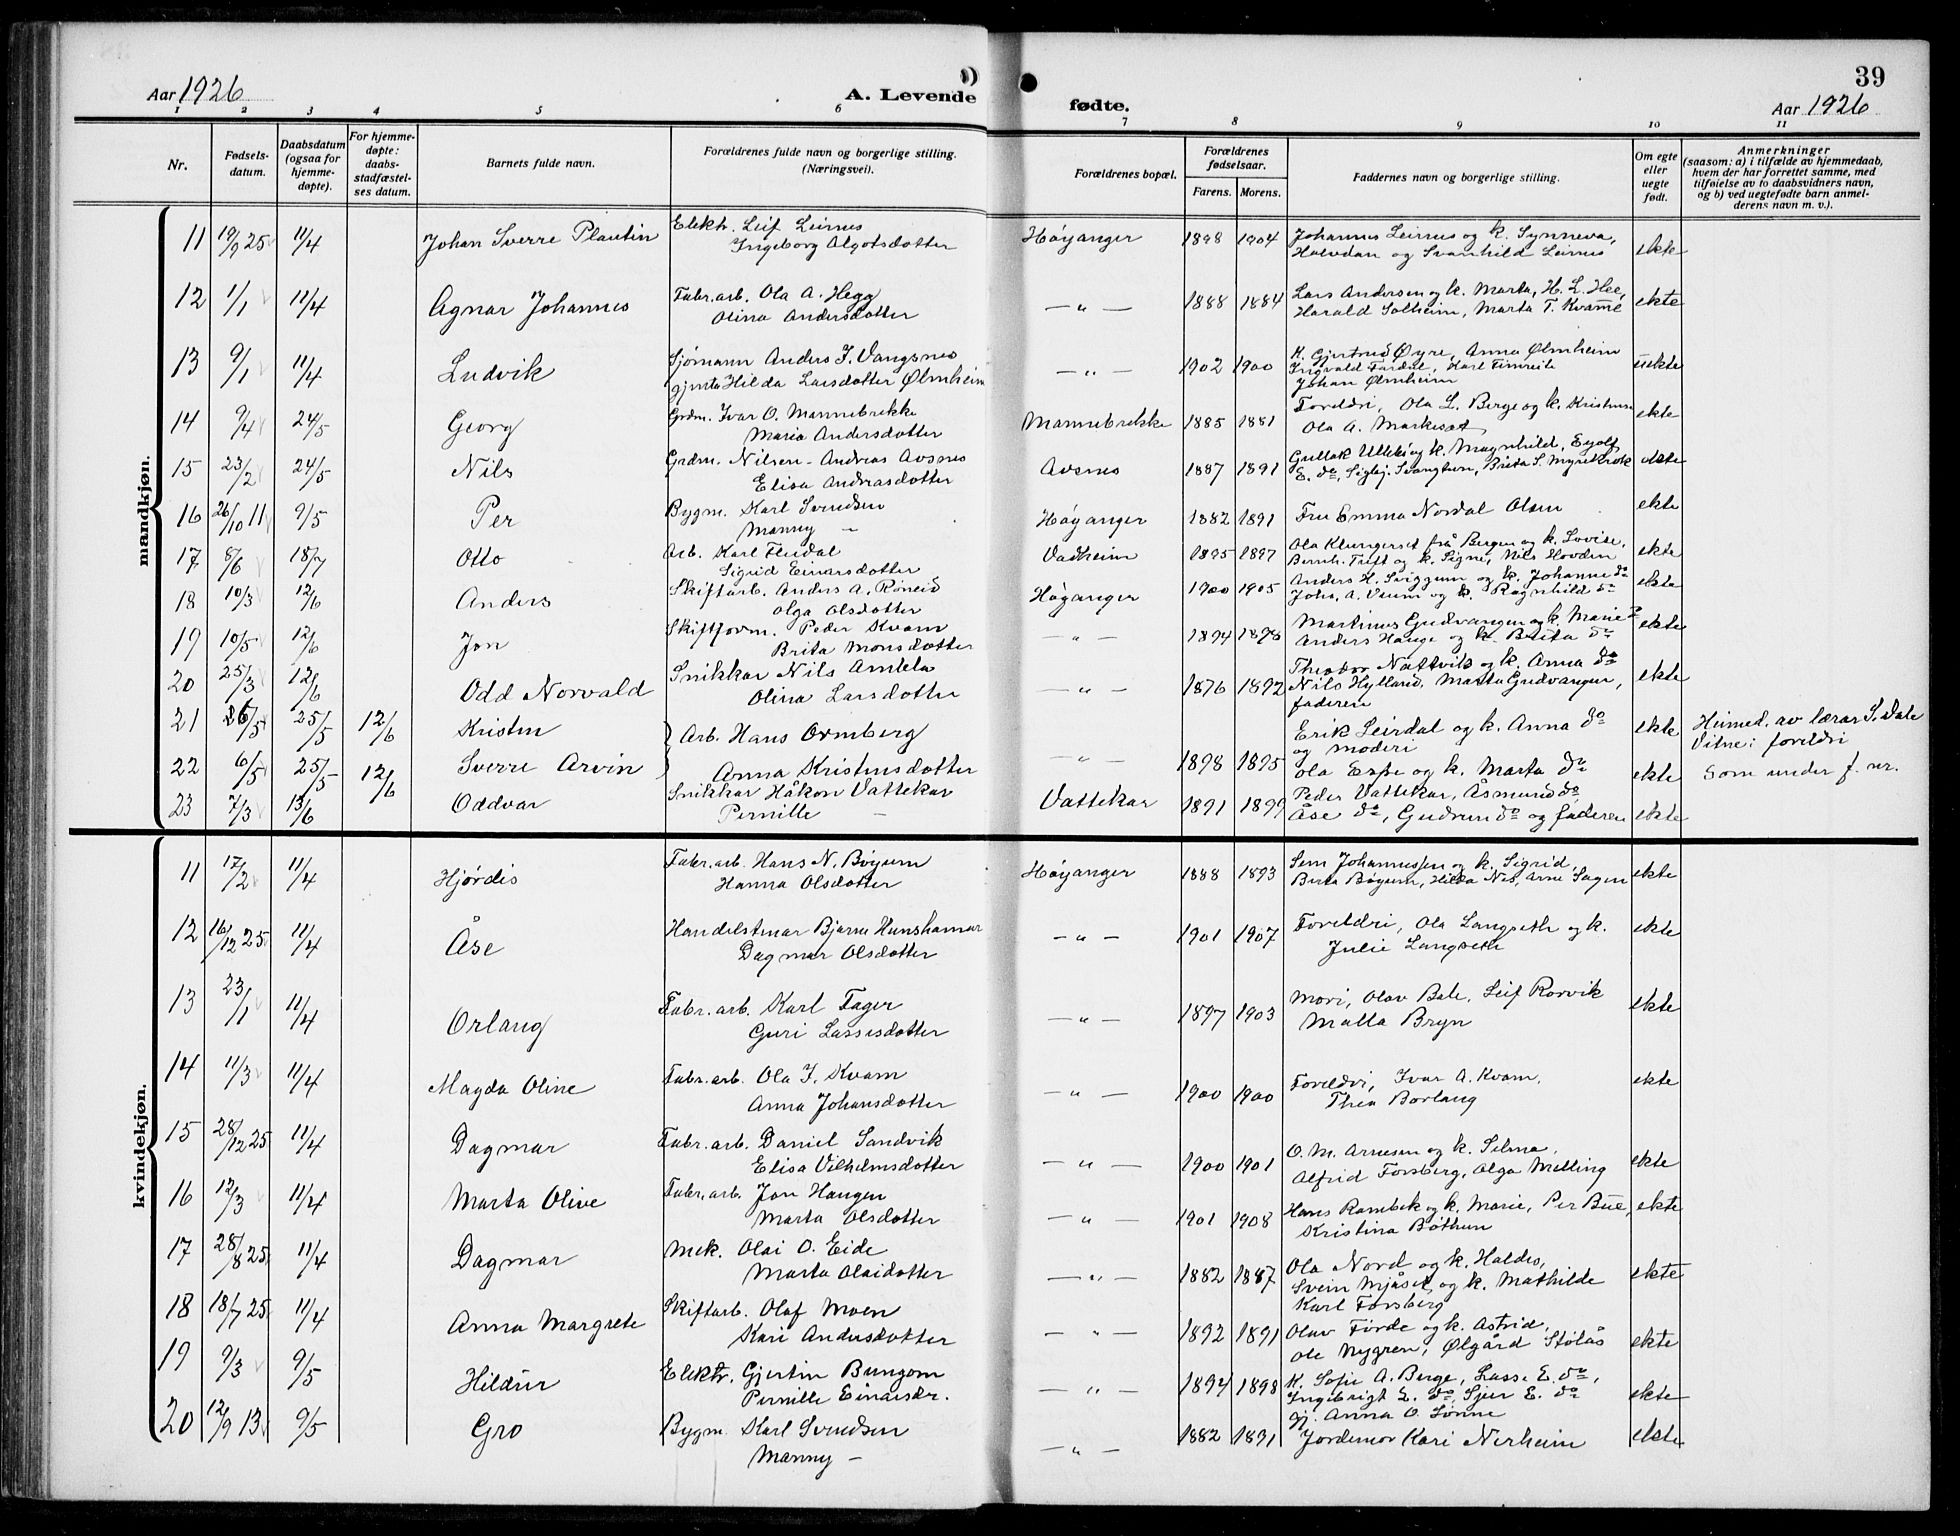 Aar 1926
A. Levende fødte.
39
Aar 1926
1 2 3 4 5 6 7 8 9 10 11
Nr.
Fødsels-datum.
Daabsdatum (ogsaa for hjemme-døpte).
For hjemme-døpte: daabs-stadfæstel-ses datum.
Barnets fulde navn.
Forældrenes fulde navn og borgerlige stilling. (Næringsvei).
Forældrenes bopæl.
Forældrenes fødselsaar.
Farens. Morens.
Faddernes navn og borgerlige stilling.
Om egte eller uegte født.
Anmerkninger
(saasom: a) i tilfælde av hjemmedaab, hvem der har forrettet samme, med tilføielse av to daabsvidners navn, og b) ved uegtefødte barn anmel-derens navn m. v.).
mandkjøn.
11 19/9 25 11/4 Johan Sverre Plautin Elektr. Leif Leirnes Høyanger 1898 1904 Johannes Leirnes og k. Synneva, ekte
Ingeborg Algotsdotter Halvdan og Svanhild Leirnes
12 1/1 11/4 Agnar Johannes Fabr.arb. Ola A. Hegg — " — 1888 1884 Lars Andersen og k. Marta, H. L. Hee, ekte
Olina Andersdotter Harald Solheim, Marta T. Kvamme
13 9/1 11/4 Ludvik Sjømann Anders J. Vangsnes — " — 1902 1900 k. Gjertrud Øyre, Anna Ølmheim uekte
gjenta Hilda Larsdotter Ølmheim Ingvald Fardal, Karl Fimreite
Johan Ølmheim
14 9/4 24/5 Georg Grdm. Ivar O. Mannebrekke Mannebrekke 1885 1881 Foreldri, Ola L. Berge og k. Kristense ekte
Maria Andersdotter Ola A. Markeset
15 23/2 24/5 Nils Grdm. Nilsen-Andreas Avsnes Avsnes 1887 1891 Gullak Ullebø og k. Magnhild, Eyolf ekte
Elisa Andrasdotter E. do, Sigbj. Svangtun, Brita S. Myrekrok
16 26/10 11 9/5 Per Bygm. Karl Svendsen Høyanger 1882 1891 Fru Emma Nordal Olsen ekte
Manny —
17 8/6 18/7 Otto Arb. Karl Fludal Vadheim 1895 1897 Ola Klungeret frå Bergen og k. Lovise, ekte
Sigrid Einarsdotter Bernh. Tuft og k. Signe, Nils Hovden
18 10/3 12/6 Anders Skiftarb. Anders A. Røneid Høyanger 1900 1905 Anders H. Sviggum og k. Johanne do ekte
Olga Olsdotter Johs. A. Veum og k. Ragnhild do
19 10/5 12/6 Jon Skiftform. Peder Kvam — " — 1894 1898 Martinus Gudvangen og k. Marie do ekte
Brita Monsdotter Anders Hauge og k. Brita do
20 25/3 12/6 Odd Norvald Snikkar Nils Amlela — " — 1876 1892 Theodor Nattvik og k. Anna do ekte
Olina Larsdotter Nils Hylland, Marta Gudvangen,
faderen
21 26/5 25/5 12/6 Kristen Arb. Hans Ormberg Erik Leirdal og k. Anna do ekte Heimed. av lærar S. Dale
og moderi Vitne: foreldri
22 6/5 25/5 12/6 Sverre Arvin Anna Kristensdotter — " — 1898 1895 Ola Espe og k. Marta do ekte Som under f. nr.
23 7/3 13/6 Oddvar Snikkar Håkon Vattekar Vattekar 1891 1899 Peder Vattekar, Åsmund do, ekte
Pernille — Åse do, Gudrun do og faderen
kvindekjøn.
11 17/2 11/4 Hjørdis Fabr.arb. Hans N. Bøyum Høyanger 1888 1893 Sem Johannessen og k. Sigrid, ekte
Hanna Olsdotter Berta Bøyum, Hilda Nes, Arne Sagen
12 16/12 25 11/4 Åse Handelsmar Bjarne Hunshamar — " — 1901 1907 Foreldri, Ola Langseth og k. ekte
Dagmar Olsdotter Julie Langseth
13 23/1 11/4 Orlaug Fabr.arb. Karl Fager — " — 1897 1903 Mori, Olav Bale, Leif Rorvik ekte
Guri Lassesdotter Malla Bryn
14 11/3 11/4 Magda Oline Fabr.arb. Ola J. Kvam — " — 1900 1900 Foreldri, Ivar A. Kvam, ekte
Anna Johansdotter Thea Borlaug
15 28/12 25 11/4 Dagmar Fabr.arb. Daniel Sandvik — " — 1900 1901 O. M. Arnesen og k. Selma, ekte
Elisa Vilhelmsdotter Alfrid Forsberg, Olga Melling
16 12/3 11/4 Marta Olive Fabr.arb. Jon Haugen — " — 1901 1908 Hans Rambek og k. Marie, Per Bue, ekte
Marta Olsdotter Kristina Bøthun
17 28/8 25 11/4 Dagmar Mek. Olai O. Eide — " — 1882 1887 Ola Nord og k. Haldis, ekte
Marta Olaidotter Svein Mjåset og k. Mathilde
Karl Forsberg
18 18/7 25 11/4 Anna Margrete Skiftarb. Olaf Moen — " — 1892 1891 Olav Førde og k. Astrid, ekte
Kari Andersdotter Ole Nygren, Ølgård Stølås
19 9/3 9/5 Hildur Elektr. Gjertin Bungom — " — 1894 1898 k. Sofie A. Berge, Lasse E. do, ekte
Pernille Einarsdr. Ingebrigt E. do, Sjur E. do
gj. Anna O. Lønne
20 12/9 13 9/5 Gro Bygm. Karl Svendsen — " — 1882 1891 Jordemor Kari Nerheim ekte
Manny —